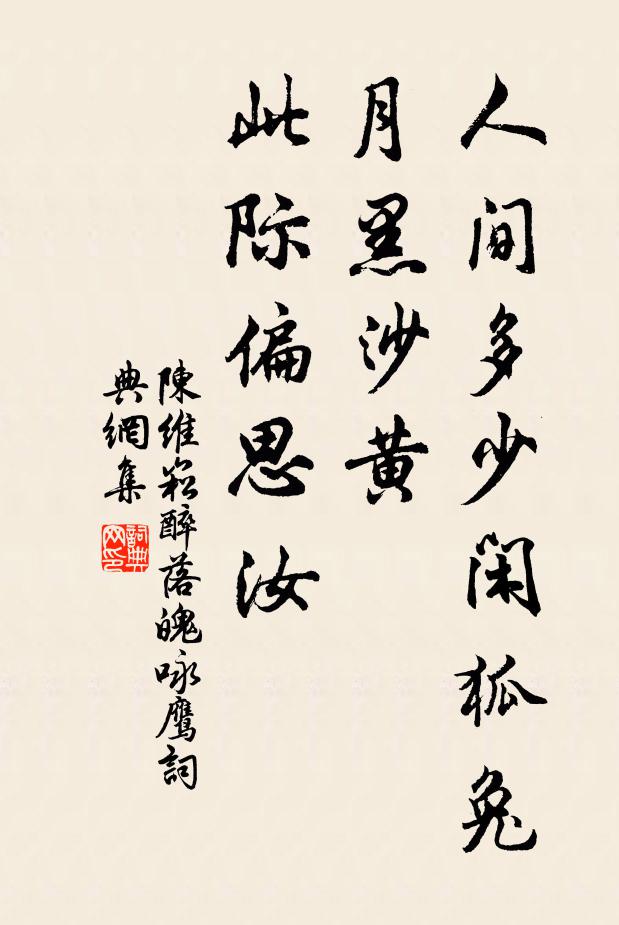 人间多少闲狐兔
月黑沙黄
此际偏思汝
陳維崧醉落魄咏鷹詞
典網集
詞典网印